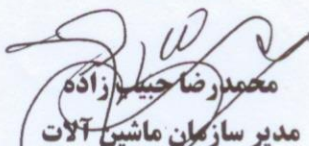 محمدرضا حبیب زاده
مدیر سازمان ماشین آلات